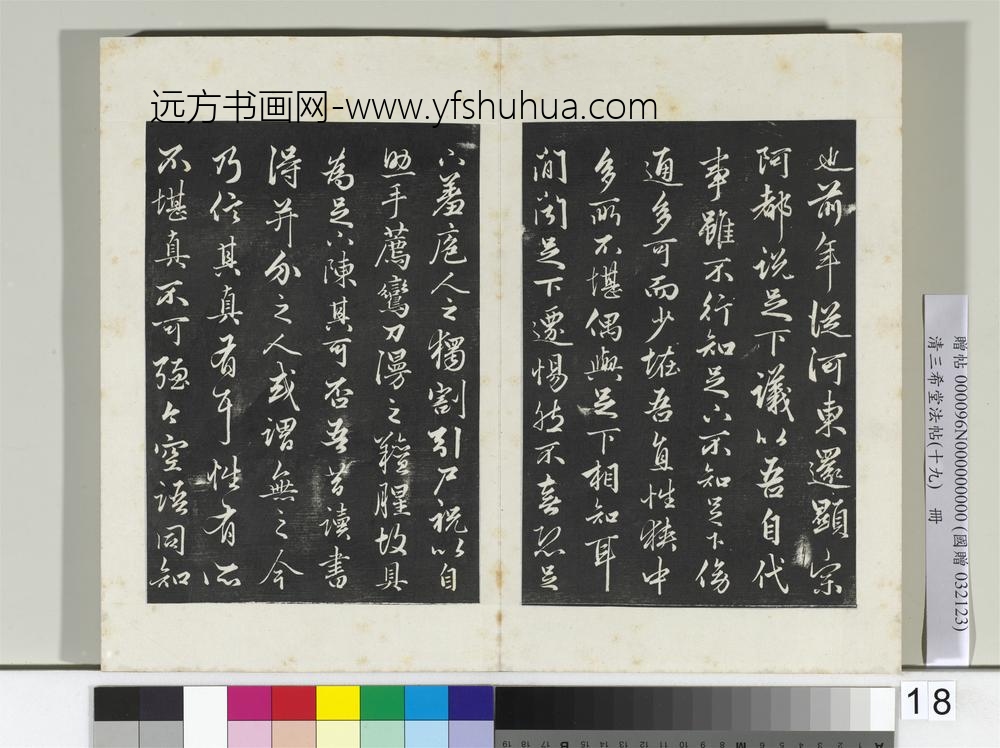 远方书画网-www.yfshuhua.com
也前年從河東還顯宗
阿都說足下議以吾自代
事雖不行知足下不知足下傍
通多可而少怪吾直性狹中
多所不堪偶與足下相知耳
間聞足下遷惕然不喜恐足
下羞庖人之獨割引尸祝以自
助手薦鸞刀漫之羶腥故具
為足下陳其可否吾昔讀書
得并介之人或謂無之今
乃信其真有耳性有所
不堪真不可強今空語同知
贈帖 000096N000000000 (國贈 032123)
清三希堂法帖(十九) 冊
18